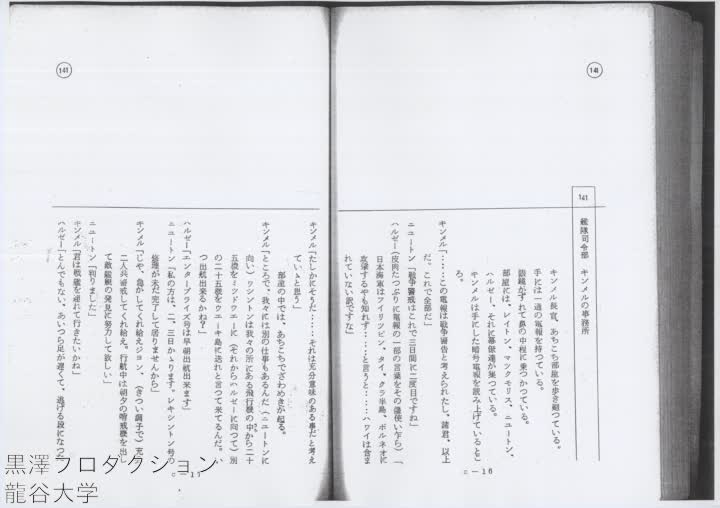 141
141
艦隊司令部 キンメルの事務所
キンメル長官、あちこち部屋を歩き廻つている。
手には一通の電報を持つている。
眼鏡がずれて鼻の中程に乗つかつている。
部屋には、レイトン、マツクモリス、ニユートン、
ハルゼー、それに幕僚達が集つている。
キンメルは手にした暗号電報を読み上げているとこ
る。
キンメル「‥‥‥この電報は戦争警告と考えられたし、諸君、以上
だ。これで全部だ」
ニユートン「戦争警戒はこれで三日間に二度目ですね」
ハルゼー（皮肉たつぷりに電報の一部の言葉をその儘使い乍ら）「
日本海軍はフイリツピン、タイ、クラ半島、ボルネオに
攻撃するやも知れず‥‥‥と言うと‥‥‥ハワイは含ま
れていない訳ですな」
c－16
141
キンメル「たしかにそうだ‥‥‥それは充分意味のある事だと考え
ていゝと思う」
部屋の中では、あちこちでざわめきが起る。
キンメル「ところで、我々には別の仕事もあるんだ（ニユートンに
向い）ワシントンは我々の所にある飛行機の中から二十
五機をミツドウエーに（それからハルゼーに向つて）別
の二十五機をウエーキ島に送れと言つて来てるんだ。い
つ出航出来るかね？」
ハルゼー「エンタープライズ号は早朝出航出来ます」
ニユートン「私の方は、二、三日かゝります。レキシントン号の
修理が未だ完了して居りませんから」
キンメル「じや、急がしてくれ給えジヨン、（きつい調子で）充分
二人共警戒してくれ給え。行航中は朝夕の哨戒機を出し
て敵艦艇の発見に努力して欲しい」
ニユートン「判りました」
キンメル「君は戦艦を連れて行きたいかね」
ハルゼー「とんでもない、あいつら足が遅くて、逃げる段になつた
c－17
黒澤プロダクション
龍谷大学